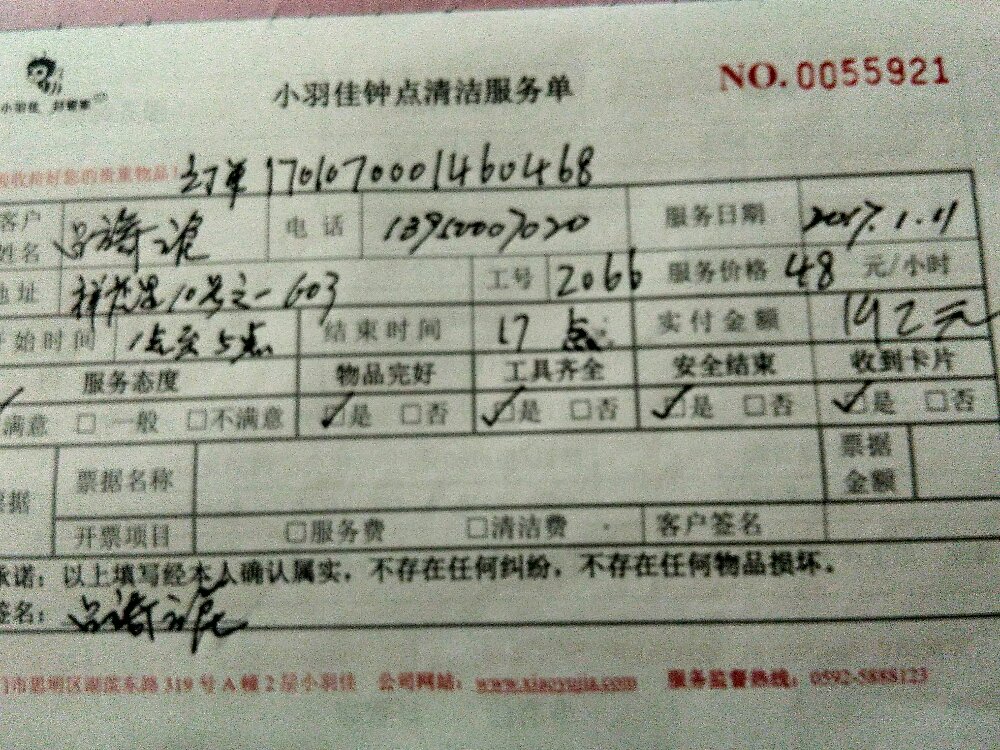 小羽佳
小羽佳钟点清洁服务单
NO.0055921
订单1701070001460468
客户姓名
电话 13950007020 服务日期 2017.1.11
地址 10号之一603 工号 2066 服务价格 48 元/小时
开始时间 1点至5点 结束时间 17点 实付金额 192元
服务态度 物品完好 工具齐全 安全结束 收到卡片
满意 □ 一般 □不满意 ☑是 □否 ☑是 □否 ☑是 □否 ☑是 □否
票据名称 票据金额
开票项目 □服务费 □清洁费 客户签名
承诺：以上填写经本人确认属实，不存在任何纠纷，不存在任何物品损坏。
签名：
门市思明区湖滨东路319号A幢2层小羽佳 公司网站：www.xiaoyujia.com 服务监督热线：0592-5888123